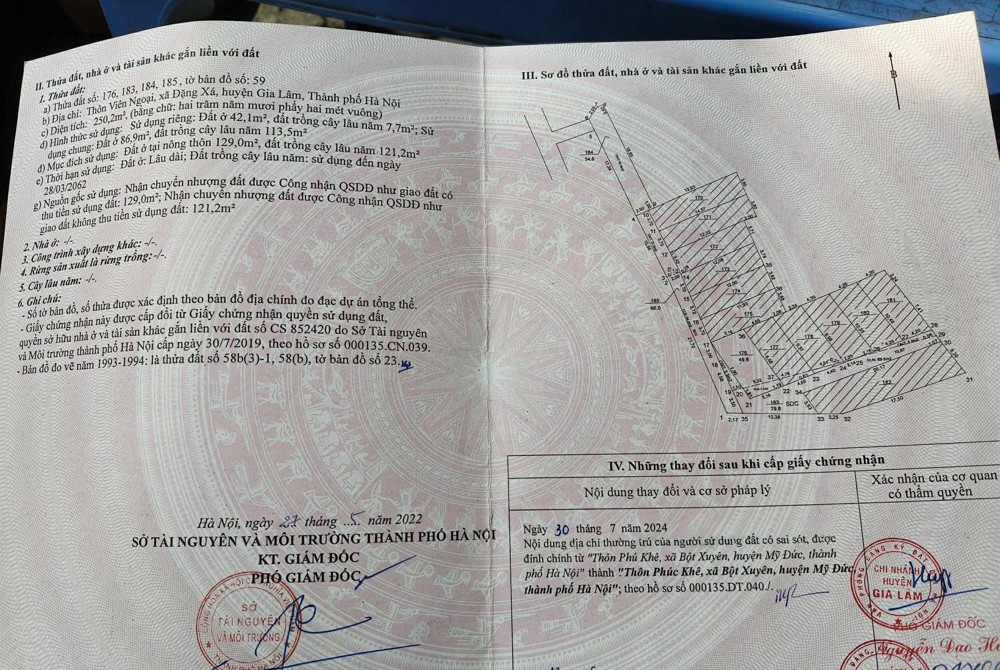 II. Thửa đất, nhà ở và tài sản khác gắn liền với đất
1. Thửa đất:
a) Thửa đất số: 176, 183, 184, 185, tờ bản đồ số: 59
b) Địa chỉ: Thôn Viên Ngoại, xã Đặng Xá, huyện Gia Lâm, Thành phố Hà Nội
c) Diện tích: 250,2m², (bằng chữ: hai trăm năm mươi phẩy hai mét vuông)
d) Hình thức sử dụng: Sử dụng riêng: Đất ở 42,1m², đất trồng cây lâu năm 7,7m²; Sử
dụng chung: Đất ở 86,9m², đất trồng cây lâu năm 113,5m²
đ) Mục đích sử dụng: Đất ở tại nông thôn 129,0m², đất trồng cây lâu năm 121,2m²
e) Thời hạn sử dụng: Đất ở: Lâu dài; Đất trồng cây lâu năm: sử dụng đến ngày
28/03/2062
g) Nguồn gốc sử dụng: Nhận chuyển nhượng đất được Công nhận QSDĐ như giao đất có
thu tiền sử dụng đất: 129,0m²; Nhận chuyển nhượng đất được Công nhận QSDĐ như
giao đất không thu tiền sử dụng đất: 121,2m²
2. Nhà ở: -/-.
3. Công trình xây dựng khác: -/-.
4. Rừng sản xuất là rừng trồng: -/-.
5. Cây lâu năm: -/-.
6. Ghi chú:
- Số tờ bản đồ, số thửa được xác định theo bản đồ địa chính đo đạc dự án tổng thể.
- Giấy chứng nhận này được cấp đổi từ Giấy chứng nhận quyền sử dụng đất,
quyền sở hữu nhà ở và tài sản khác gắn liền với đất số CS 852420 do Sở Tài nguyên
và Môi trường thành phố Hà Nội cấp ngày 30/7/2019, theo hồ sơ số 000135.CN.039.
- Bản đồ đo vẽ năm 1993-1994: là thửa đất số 58b(3)-1, 58(b), tờ bản đồ số 23.
Hà Nội, ngày 27 tháng 5 năm 2022
SỞ TÀI NGUYÊN VÀ MÔI TRƯỜNG THÀNH PHỐ HÀ NỘI
KT. GIÁM ĐỐC
PHÓ GIÁM ĐỐC
SỞ
TÀI NGUYÊN
VÀ MÔI TRƯỜNG
III. Sơ đồ thửa đất, nhà ở và tài sản khác gắn liền với đất
B
184
54.6
170
171
172
173
174
185
66.0
176
49.8
183
79.8
SDC
181
182
1 2,17 35 10,38 33 3,25 32 17,50 31
IV. Những thay đổi sau khi cấp giấy chứng nhận
Nội dung thay đổi và cơ sở pháp lý
Xác nhận của cơ quan
có thẩm quyền
Ngày 30 tháng 7 năm 2024
Nội dung địa chỉ thường trú của người sử dụng đất có sai sót, được
đính chính từ "Thôn Phú Khê, xã Bột Xuyên, huyện Mỹ Đức, thành
phố Hà Nội" thành "Thôn Phúc Khê, xã Bột Xuyên, huyện Mỹ Đức,
thành phố Hà Nội"; theo hồ sơ số 000135.DT.040./.
CHI NHÁNH
HUYỆN
GIA LÂM
PHÓ GIÁM ĐỐC
Nguyễn Đạo H